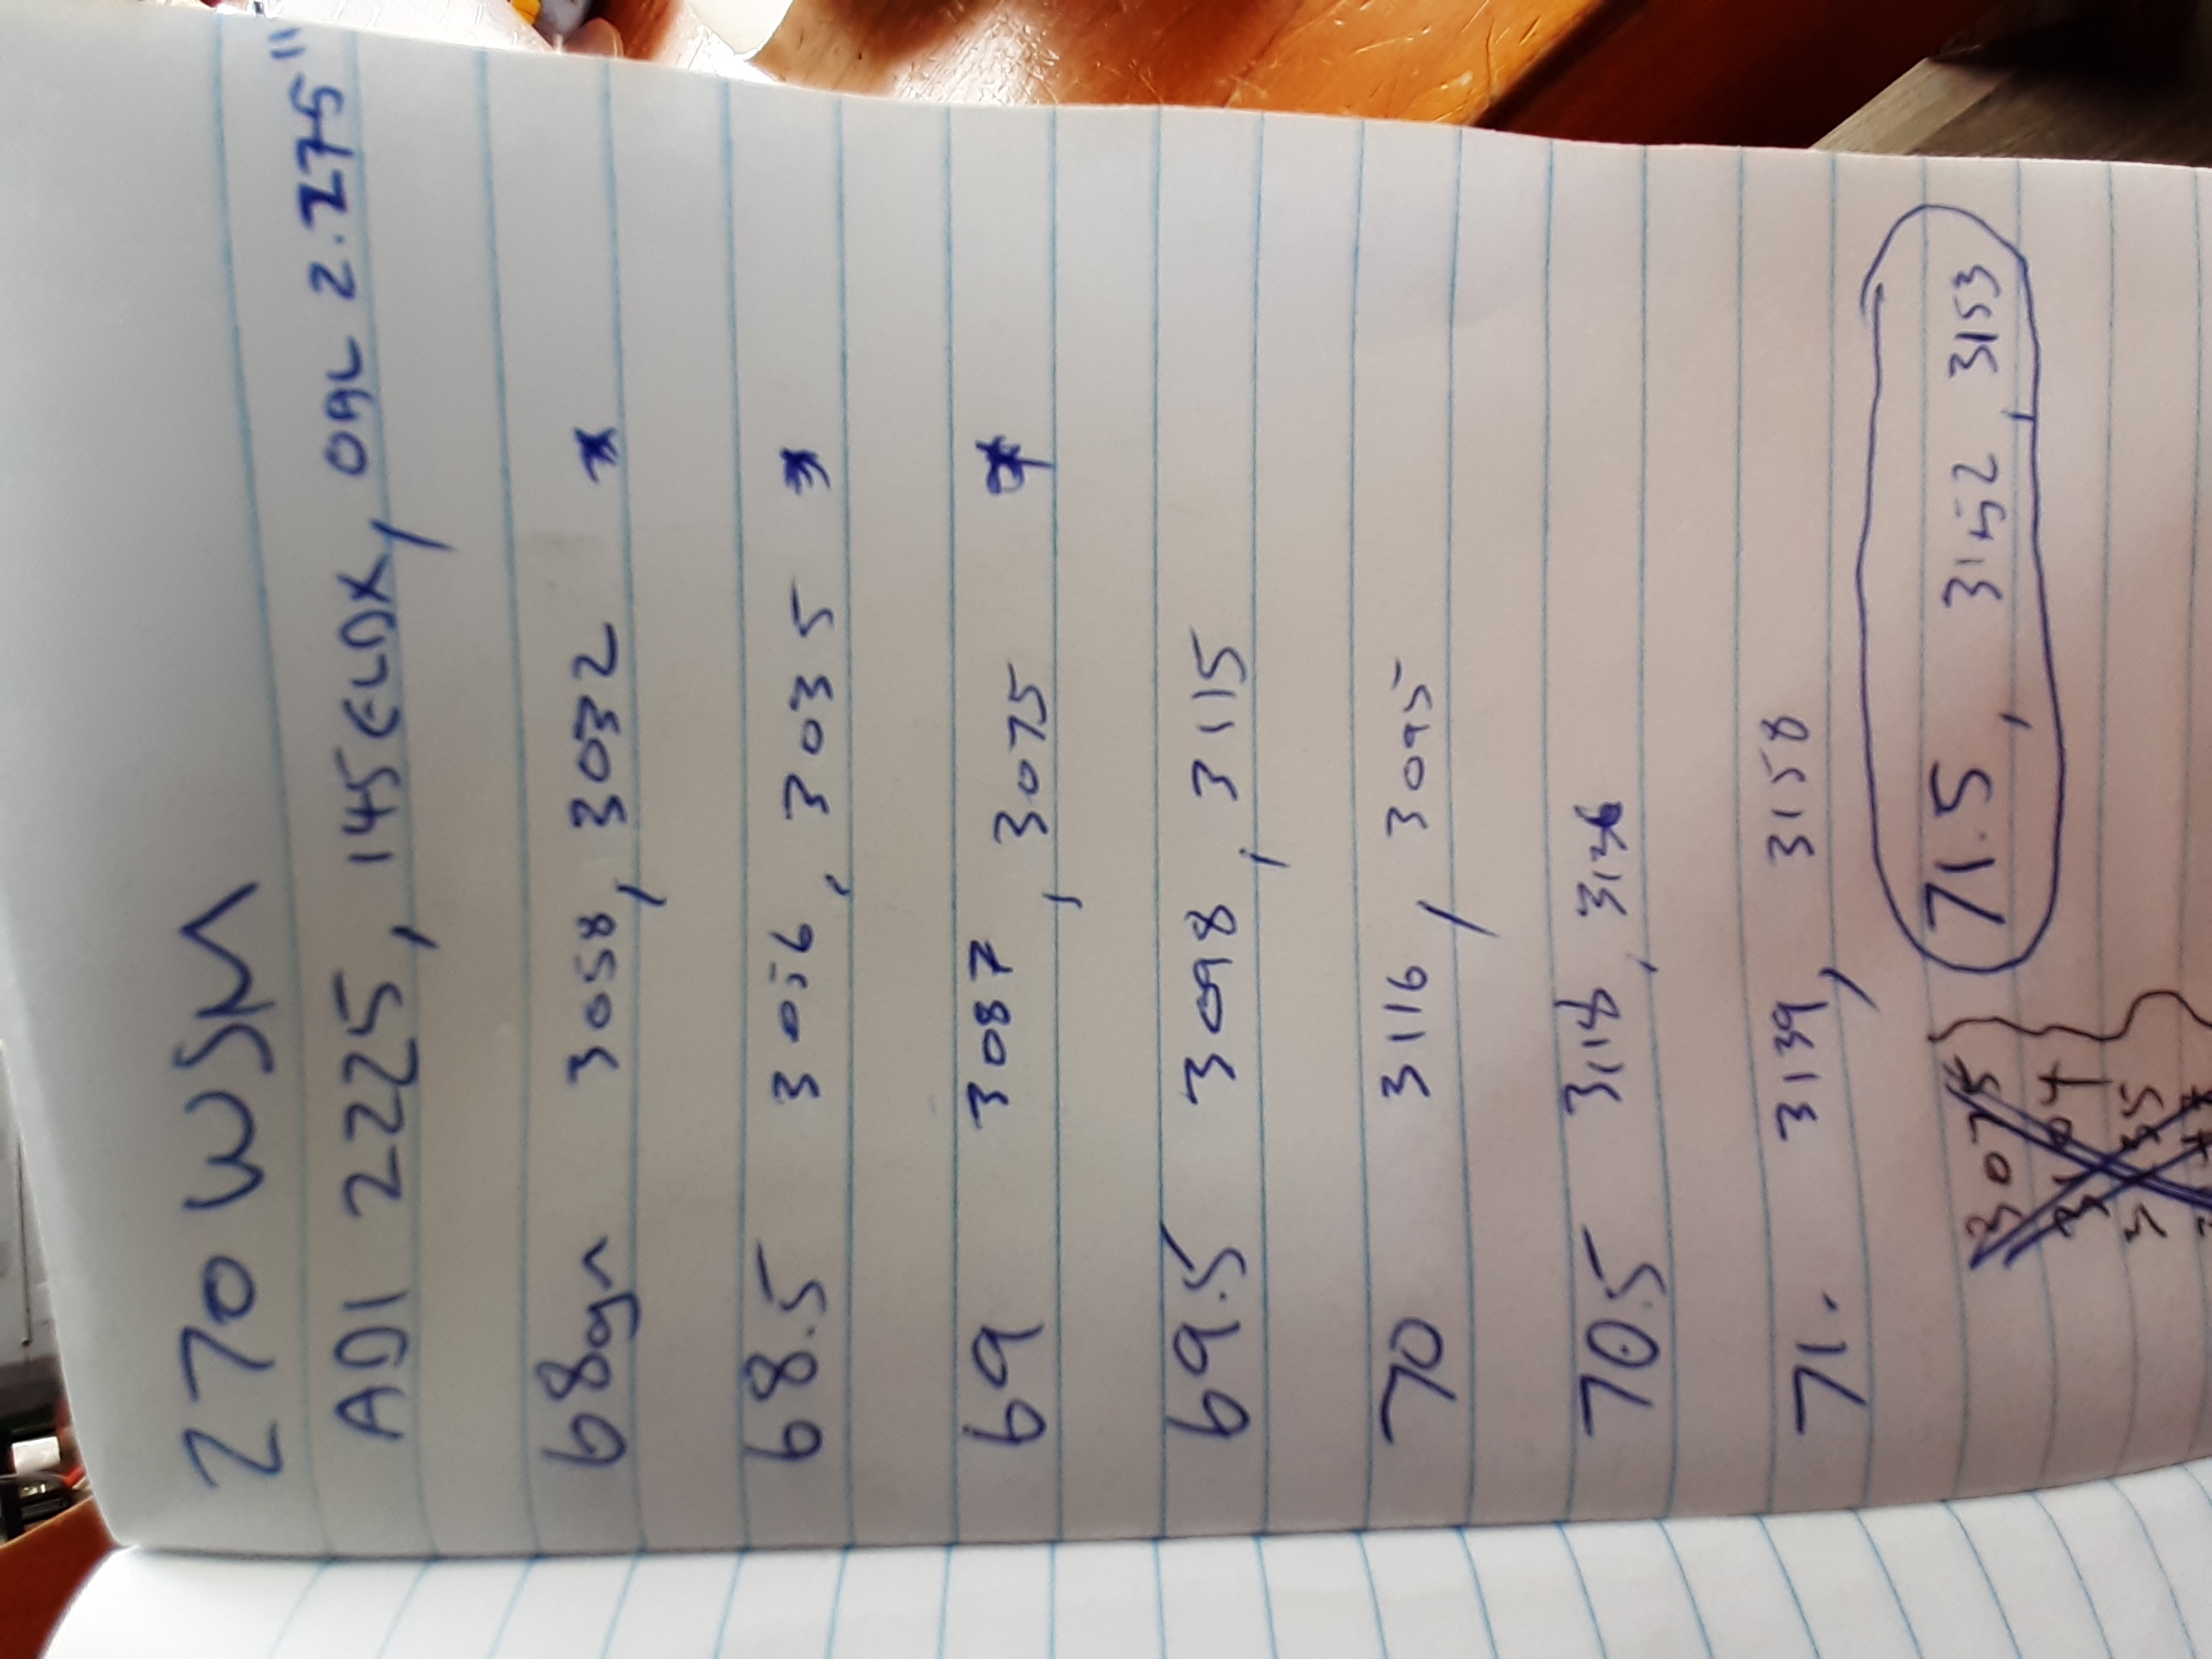 270 WSM
ADI 2225, 145 ELDX, OAL 2.275"
68gn 3058, 3032 *
68.5 3056, 3035 *
69 3087, 3075 *
69.5 3098, 3115
70 3116, 3095
70.5 3118,
71. 3139, 3158
71.5, 3152, 3153
3075